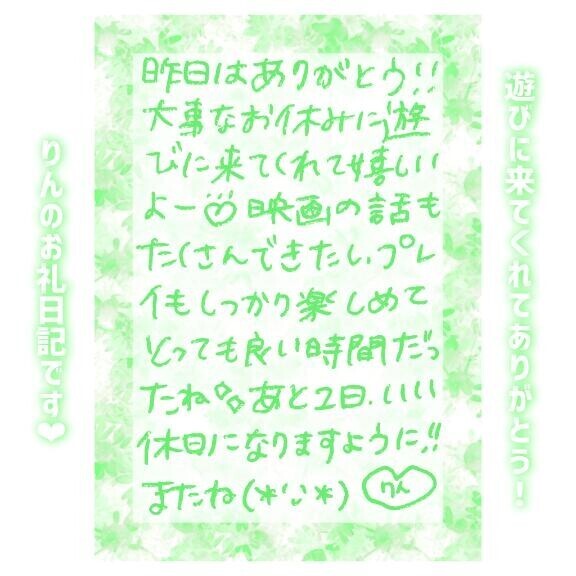 遊びに来てくれてありがとう！
昨日はありがとう!!
大事なお休みに遊
びに来てくれて嬉しい
よー♡映画の話も
たくさんできたし、プレ
イもしっかり楽しめて
とっても良い時間だっ
たね あと2日、いい
休日になりますように!!
またね(*'ᵕ'*) りん
りんのお礼日記です❤